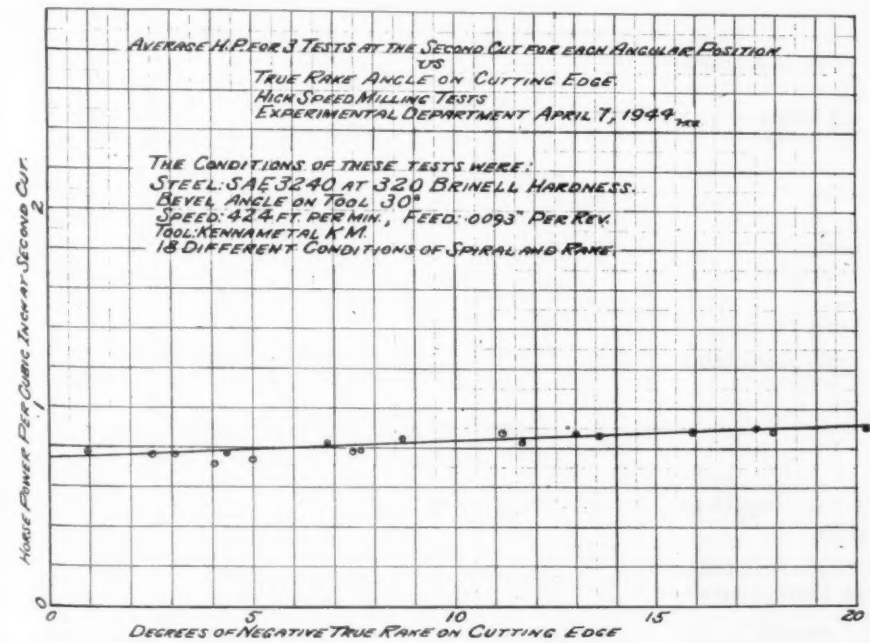 AVERAGE H.P. FOR 3 TESTS AT THE SECOND CUT FOR EACH ANGULAR POSITION
VS
TRUE RAKE ANGLE ON CUTTING EDGE.
HIGH SPEED MILLING TESTS
EXPERIMENTAL DEPARTMENT APRIL 7, 1944
THE CONDITIONS OF THESE TESTS WERE:
STEEL: SAE 3240 AT 320 BRINELL HARDNESS.
BEVEL ANGLE ON TOOL 30°
SPEED: 424 FT. PER MIN., FEED: .0093" PER REV.
TOOL: KENNAMETAL KM.
18 DIFFERENT CONDITIONS OF SPIRAL AND RAKE.
HORSE POWER PER CUBIC INCH AT SECOND CUT.
2
1
0
0 5 10 15 20
DEGREES OF NEGATIVE TRUE RAKE ON CUTTING EDGE